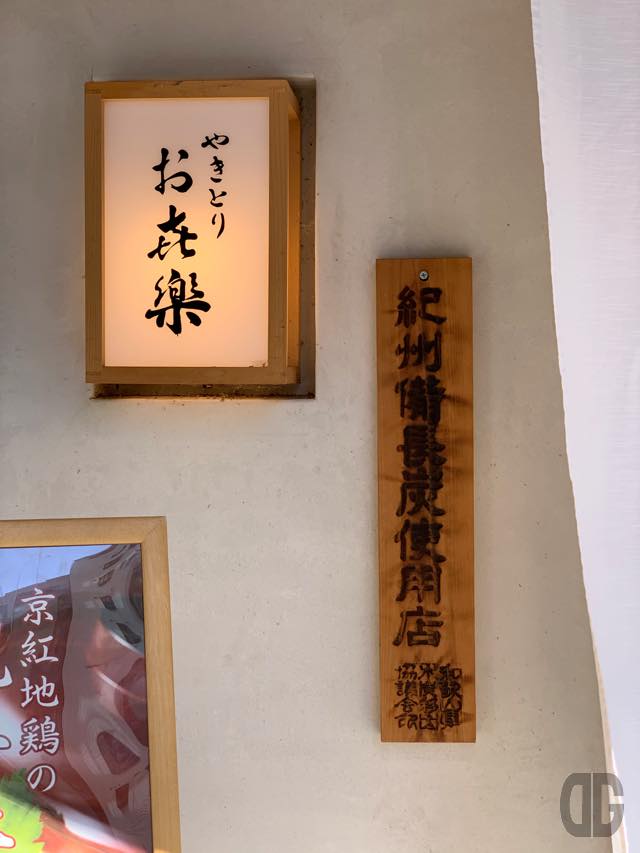 やきとり
お㐂樂
紀州備長炭使用店
和歌山県
木炭
協議会
京紅地鶏の
DG